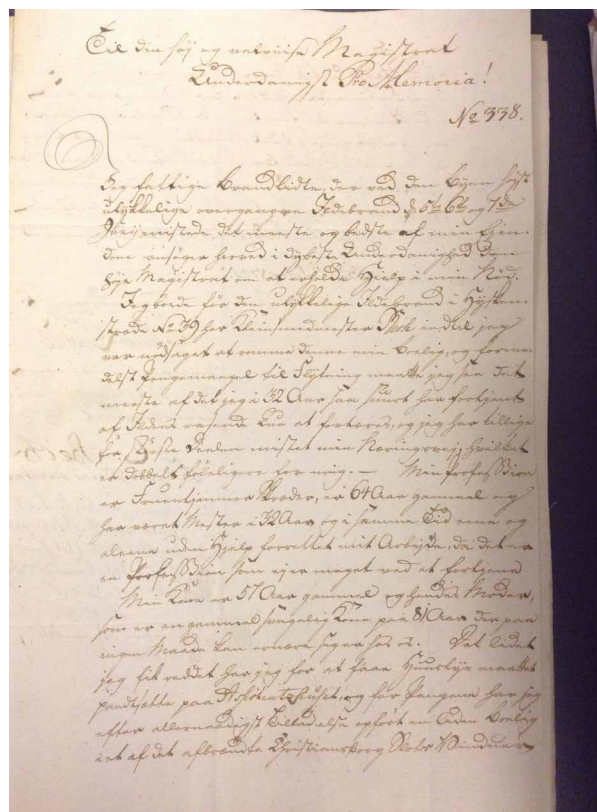 Til den høj og velviise Magistrat
Underdanigst Pro Memoria!
No 338.
Jeg fattige Brandlidte, der ved den Byen høist
ulykkelige overgangne Ildebrand d: 5te 6te og 7de
Juny mistede det meeste og bedste af min Ejen-
dom ansøger herved i dybeste Underdanighed den
høye Magistrat om at erholde Hjelp i min Nød.
Jeg boede før den ulykkelige Ildebrand i Hysken-
stræde No 39 hos Kleinsmedmester indtil jeg
var nødsaget at rømme denne min Boelig, og forme-
delst Pengemangel til Flytning maatte jeg see det
meeste af det jeg i 32 Aar saa suurt har fortient
af Ildens rasende Lue at fortæres, og jeg har tillige
for Største Deelen mistet min Næringsvej, hvilket
er dobbelt føleligere for mig. — Min Profession
er Fruentjmmer Skræder, er 64 Aar gammel og
har været Mester i 32 Aar, og i samme Tid eene og
alleene uden Hjelp forrettet mit Arbejde, da det er
en Profession som ej er meget ved at fortjene
Min Kone er 57 Aar gammel og hendes Moder,
som er en gammel svagelig Kone paa 81 Aar der paa
ingen Maade kan ernære sig er hos os. Det lidet
jeg fik reddet har jeg for at faae Huuslye maattet
pandtsætte paa Assistentshuset, og for Pengene har jeg
efter allernaadigst Tilladelse opført en Boelig
i et af det afbrændte Christiansborg Slots Vinduer